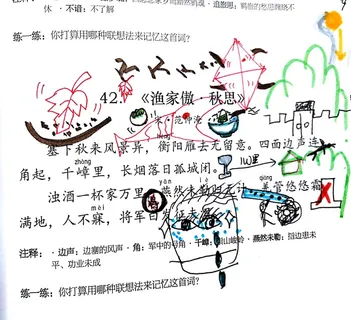 休 · 不谙：不了解
练一练：你打算用哪种联想法来记忆这首词？
42. 《渔家傲·秋思》
范仲淹
塞下秋来风景异，衡阳雁去无留意。四面边声连
zhàng
角起，千嶂里，长烟落日孤城闭。
浊酒一杯家万里，燕然未勒归无计。羌管悠悠霜
mèi
满地，人不寐，将军白发征夫泪。
注释： · 边声：边塞的风声 · 角：军中的号角 · 千嶂：崇山峻岭 · 燕然未勒：指边患未
平、功业未成
练一练：你打算用哪种联想法来记忆这首词？